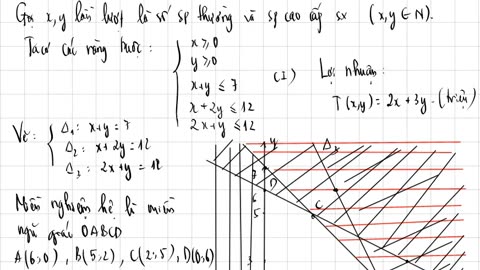 Gọi x, y lần lượt là số sp thường và sp cao cấp sx (x, y ∈ N).
Ta có các ràng buộc :
x ≥ 0
y ≥ 0
x + y ≤ 7
x + 2y ≤ 12
2x + y ≤ 12
(I)
Lợi nhuận:
T(x,y) = 2x + 3y (triệu)
Vẽ:
Δ₁: x + y = 7
Δ₂: x + 2y = 12
Δ₃: 2x + y = 12
y
Δ₃
7
D
6
5
C
Miền nghiệm hệ là miền
ngũ giác OABCD
A(6;0), B(5;2), C(2;5), D(0;6)